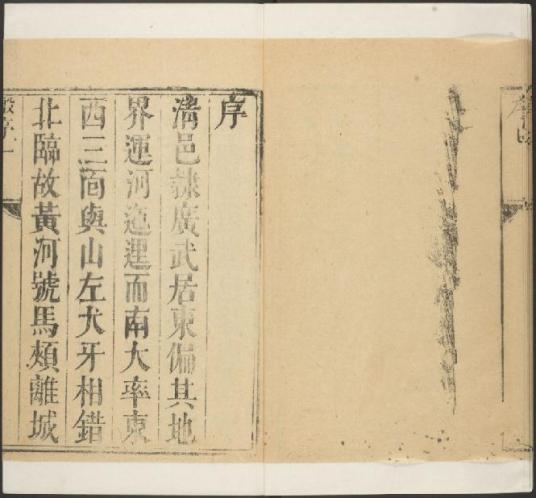 序
清邑隸廣武居東偏其地
界運河迤邐而南大率東
西三面與山左犬牙相錯
北臨故黃河號馬頰離城